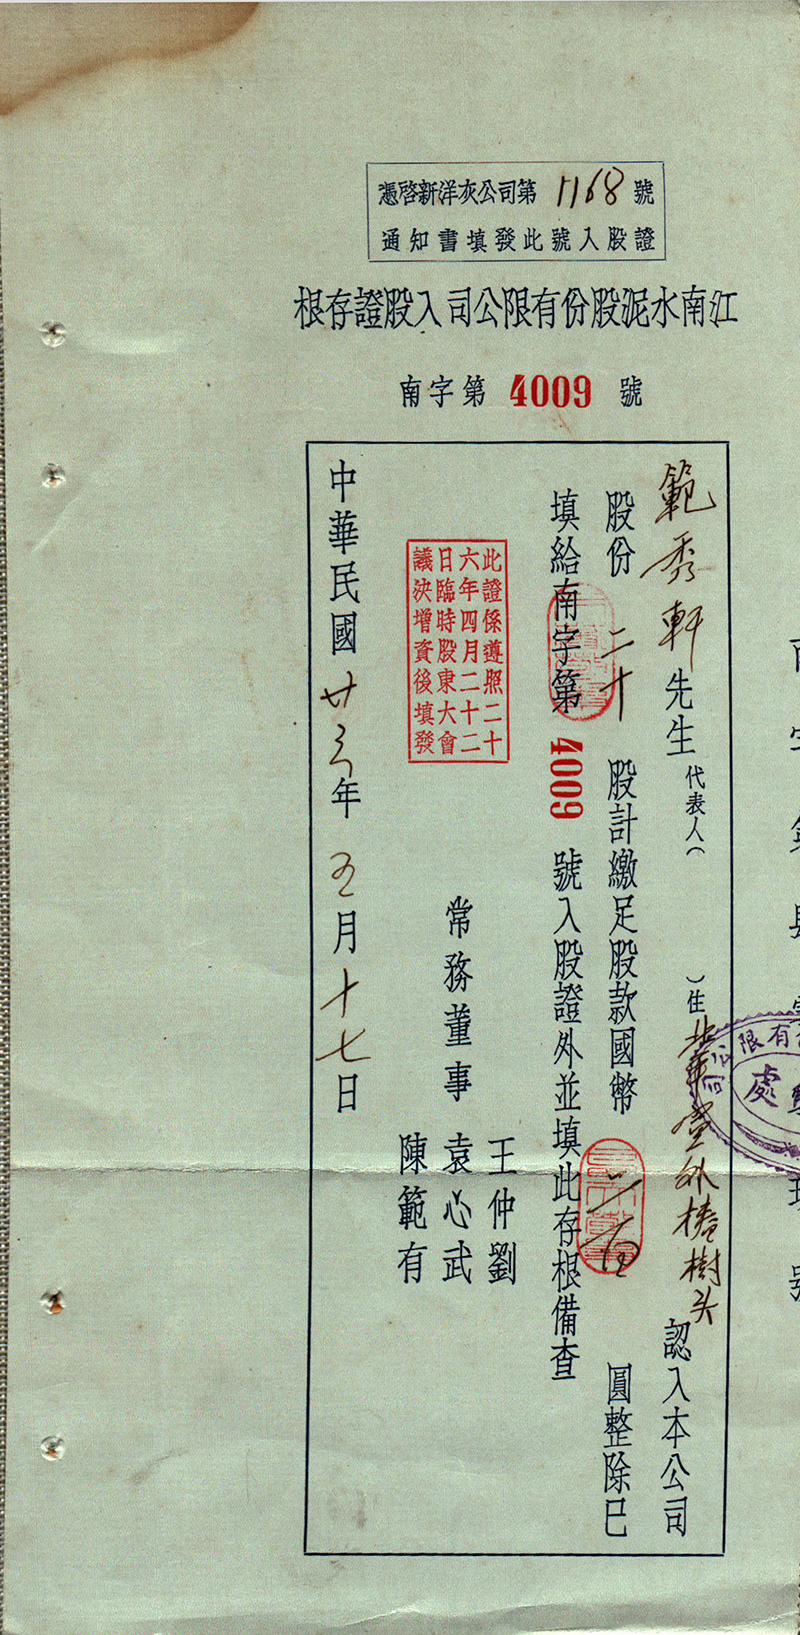 憑啓新洋灰公司第1168號
通知書填發此號入股證
江南水泥股份有限公司入股證存根
南字第 4009 號
範秀軒先生代表人（　）住北華堂外椿樹头 認入本公司
股份二十股計繳足股款國幣二百圓整除已
填給南字第 4009 號入股證外並填此存根備查
此證係遵照二十
六年四月二十二
日臨時股東大會
議決增資後填發
常務董事
王仲劉
袁心武
陳範有
中華民國廿六年五月十七日
有限公司
處